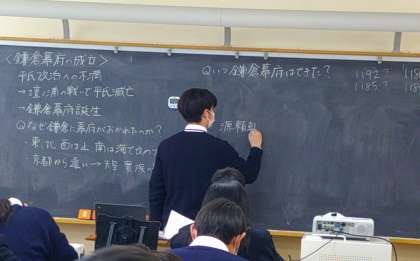 <鎌倉幕府の成立>
平氏政治への不満
→壇ノ浦の戦いで平氏滅亡
→鎌倉幕府誕生
Qなぜ鎌倉に幕府がおかれたのか?
・東、北、西は山 南は海で攻め
・京都から遠い→天皇 貴族の
Qいつ鎌倉幕府はできた?
1192?
1185?
源頼